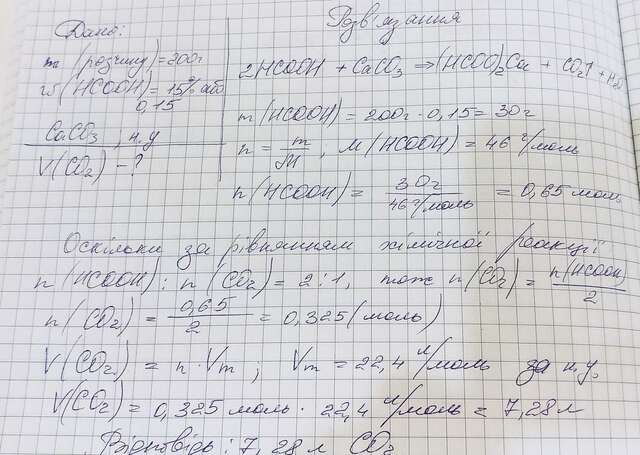 Дано:
m (розчину) = 200г
w (HCOOH) = 15% або
0,15
CaCO3, н.у
V(CO2) - ?
Розв'язання
2HCOOH + CaCO3 → (HCOO)2Ca + CO2↑ + H2O
m (HCOOH) = 200г · 0,15 = 30г
n = m/M, M (HCOOH) = 46 г/моль
n (HCOOH) = 30г / 46 г/моль = 0,65 моль
Оскільки за рівнянням хімічної реакції
n (HCOOH) : n (CO2) = 2 : 1, тож n (CO2) = n(HCOOH) / 2
n (CO2) = 0,65 / 2 = 0,325 (моль)
V (CO2) = n · Vm, Vm = 22,4 л/моль за н.у.
V(CO2) = 0,325 моль · 22,4 л/моль = 7,28 л
Відповідь : 7,28 л CO2